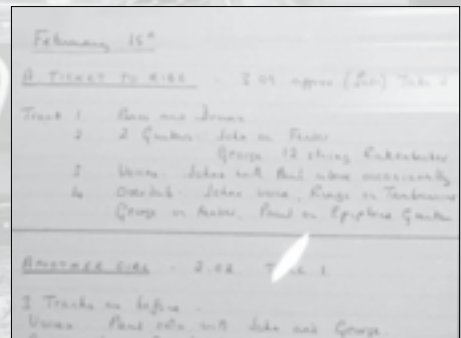 February 15th
A TICKET TO RIDE - 3.03 approx (Full) Take 2
Track 1 Bass and Drums
2 2 Guitars John on Fender
George 12 string Rickenbacker
3 Voices John with Paul above occasionally
4 Overdub Johns voice, Ringo on Tambourine
George on Fender, Paul on Epiphone Guitar
ANOTHER GIRL - 2.02 Take 1
3 Tracks as before
Voices Paul solo with John and George